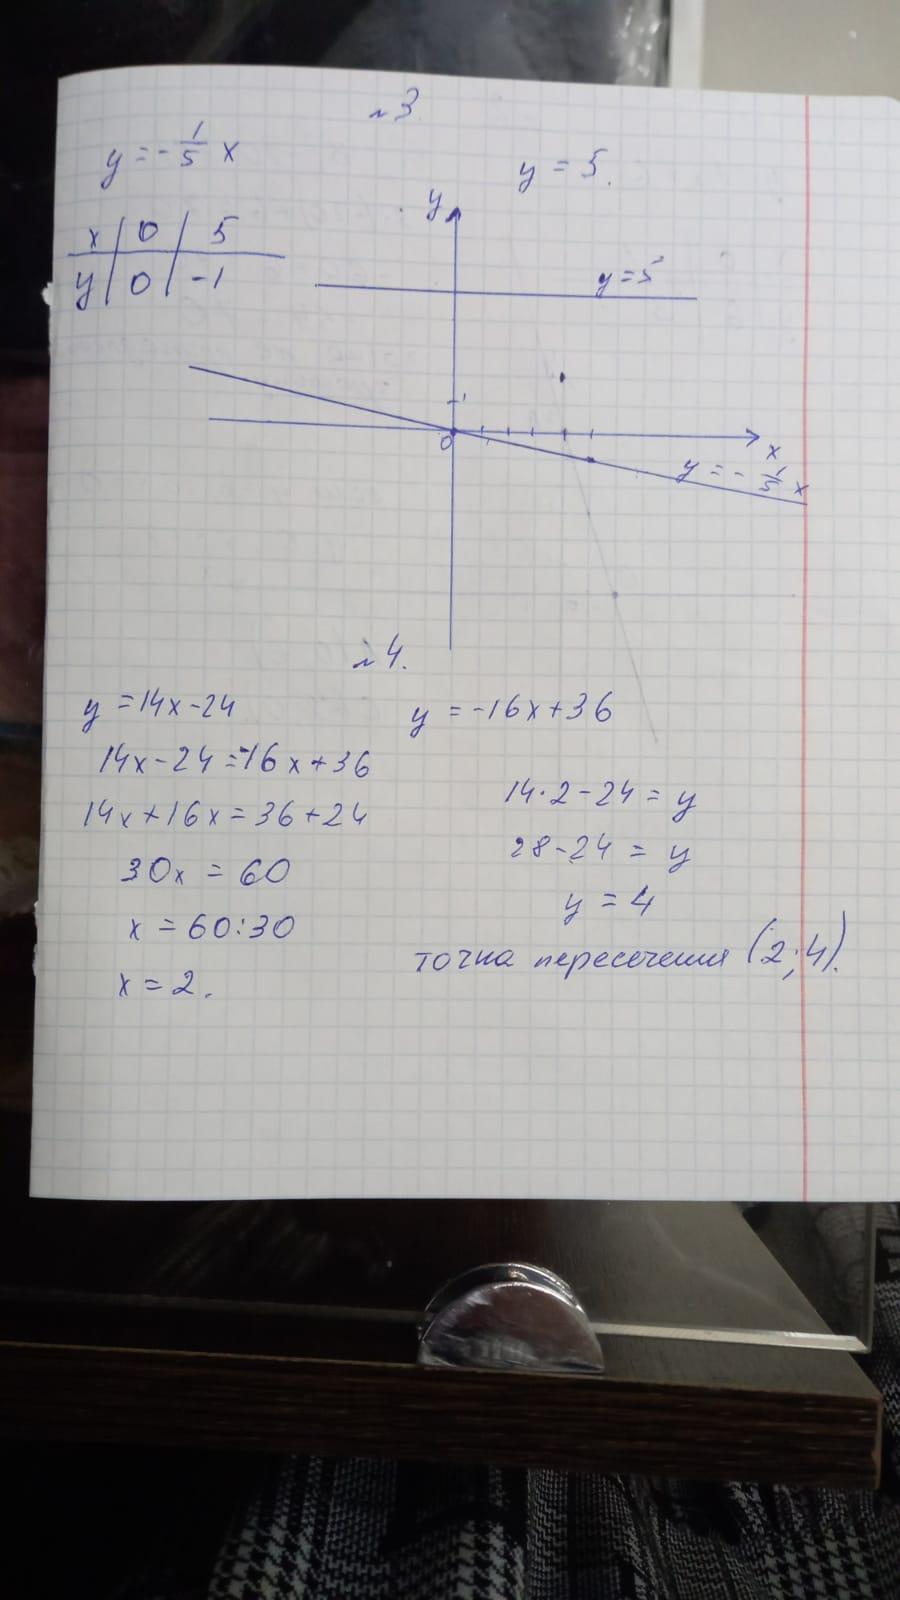 №3
y = -1/5 x
y = 5.
x | 0 | 5
y | 0 | -1
y
y = 5
1
0
x
y = -1/5 x
№4.
y = 14x - 24
y = -16x + 36
14x - 24 = -16x + 36
14x + 16x = 36 + 24
30x = 60
x = 60:30
x = 2.
14·2 - 24 = y
28 - 24 = y
y = 4
точка пересечения (2; 4).